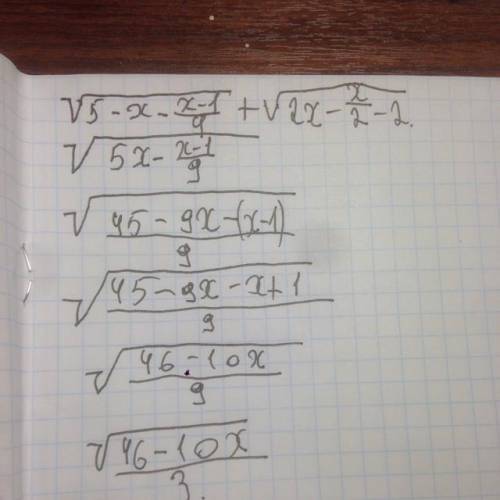 √(5 - x - (x-1)/9) + √(2x - x/2 - 2.)
√(5x - (x-1)/9)
√((45 - 9x - (x-1))/9)
√((45 - 9x - x + 1)/9)
√((46 - 10x)/9)
√(46 - 10x)/3.